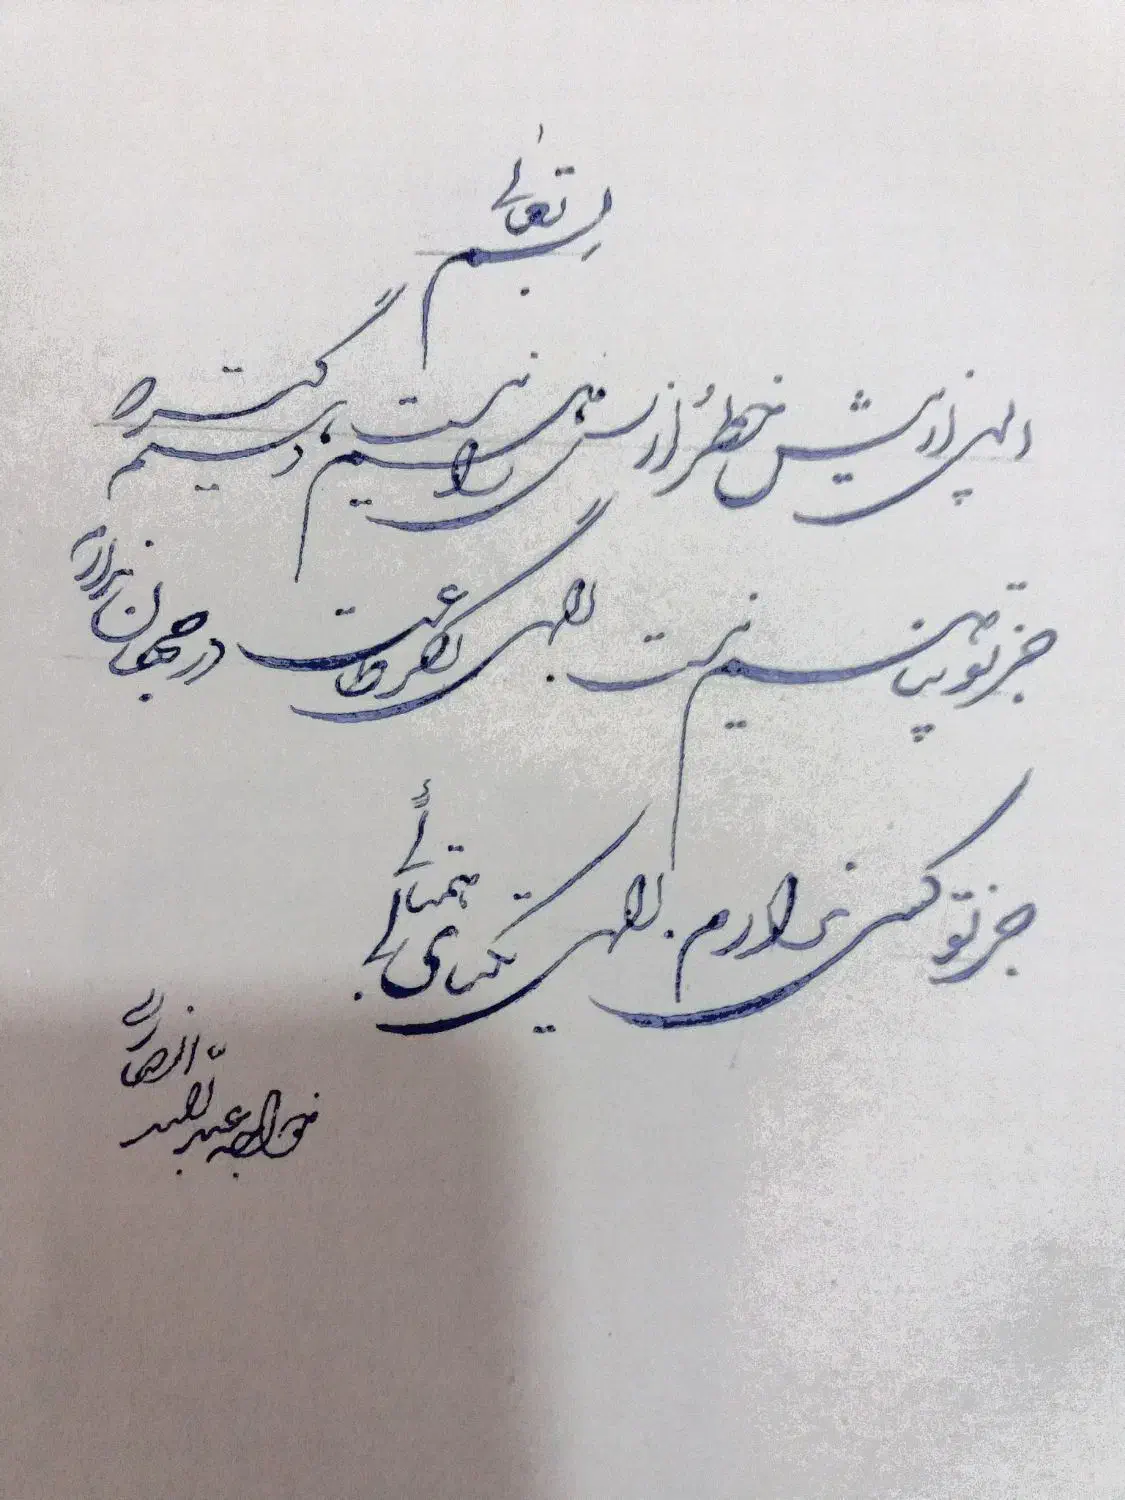 بسم تعالی
الهی از پیش خطر و از پس راهم نیست، دستم گیر
جز تو پناهم نیست. الهی اگر طاعت در جهان ندارم
جز تو کسی ندارم. الهی یکتای بی همتائی
خواجه عبدالله
انصاری